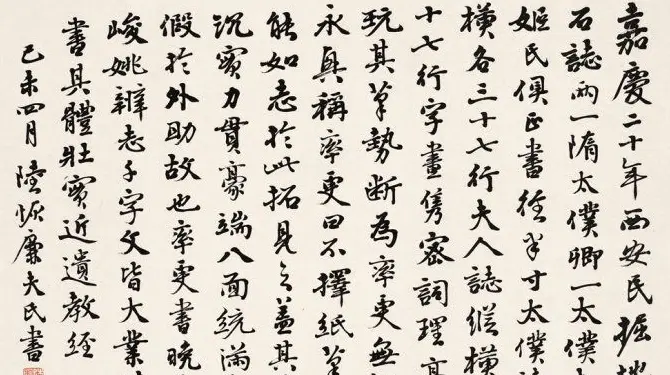 嘉慶二十年西安民掘
石誌兩一隋太僕卿一太僕
姬氏俱正書徑半寸太僕
橫各三十七行夫人誌縱橫
十七行字畫雋密詞理
玩其筆勢斷為率更無
永興稱率更曰不擇紙筆
能如志於此拓見之蓋其
沉實力貫豪端八面統滿
假於外助故也率更書晚
峻姚辯志千字文皆大業
書具體壯實近遺教經
己未四月陸恢廉夫氏書